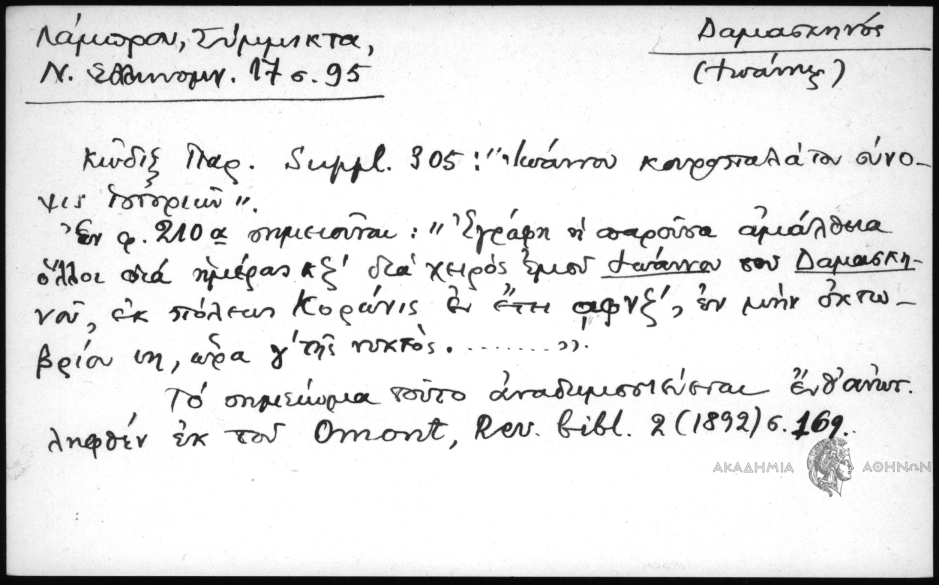 Λάμπρου, Σύμμικτα,
Ν. Ἑλληνομν. 17 σ. 95
Δαμασκηνός
(Ἰωάννης)
Κῶδιξ Παρ. Suppl. 305: "Ἰωάννου κουροπαλάτου σύνο-
ψις ἱστοριῶν".
Ἐν φ. 210α σημειοῦται: "Ἐγράφη ἡ παροῦσα ἀμάλθεια
διά χειρός ἐμοῦ Ἰωάννου τοῦ Δαμασκη-
νοῦ, ἐκ πόλεως Κορώνις ἐν ἔτει ͵αφνζ΄, ἐν μηνί ὀκτω-
βρίου ιη, ὥρα γ΄ τῆς νυκτός. ........".
Τό σημείωμα τοῦτο ἀναδημοσιεύεται ἔνθ' ἀνωτ.
ληφθέν ἐκ τοῦ Omont, Rev. bibl. 2 (1892) σ. 169.
ΑΚΑΔΗΜΙΑ ΑΘΗΝΩΝ